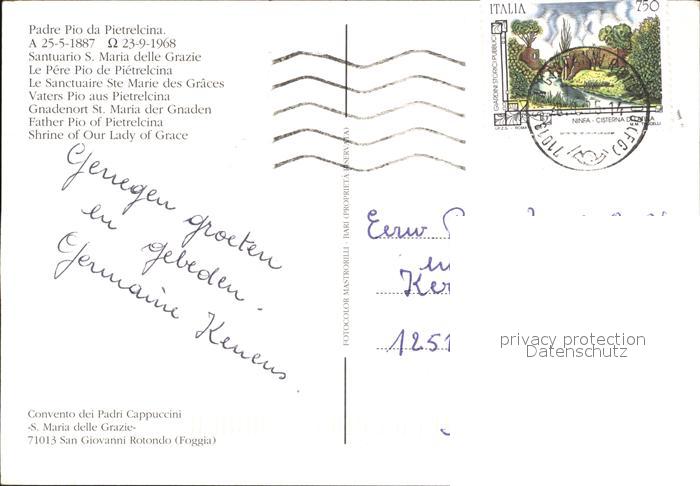 Padre Pio da Pietrelcina.
A 25-5-1887 Ω 23-9-1968
Santuario S. Maria delle Grazie
Le Pére Pio de Piétrelcina
Le Sanctuaire Ste Marie des Grâces
Vaters Pio aus Pietrelcina
Gnadenort St. Maria der Gnaden
Father Pio of Pietrelcina
Shrine of Our Lady of Grace
Genegen groeten
en gebeden.
Germaine
Convento dei Padri Cappuccini
-S. Maria delle Grazie-
71013 San Giovanni Rotondo (Foggia)
FOTOCOLOR MASTRORILLI - BARI (PROPRIETÀ RISERVATA)
ITALIA 750
GIARDINI STORICI PUBBLICI
NINFA - CISTERNA DI
I.P.Z.S. - ROMA
71013 (FG)
Eerw
en
Ker
1251
privacy protection
Datenschutz